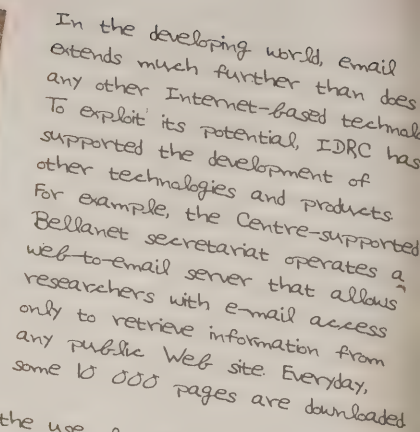 In the developing world, email
extends much further than does
any other Internet-based technol
To exploit its potential, IDRC has
supported the development of
other technologies and products.
For example, the Centre-supported
Bellanet secretariat operates a
web-to-email server that allows
researchers with e-mail access
only to retrieve information from
any public Web site. Everyday,
some 10 000 pages are downloaded
the use